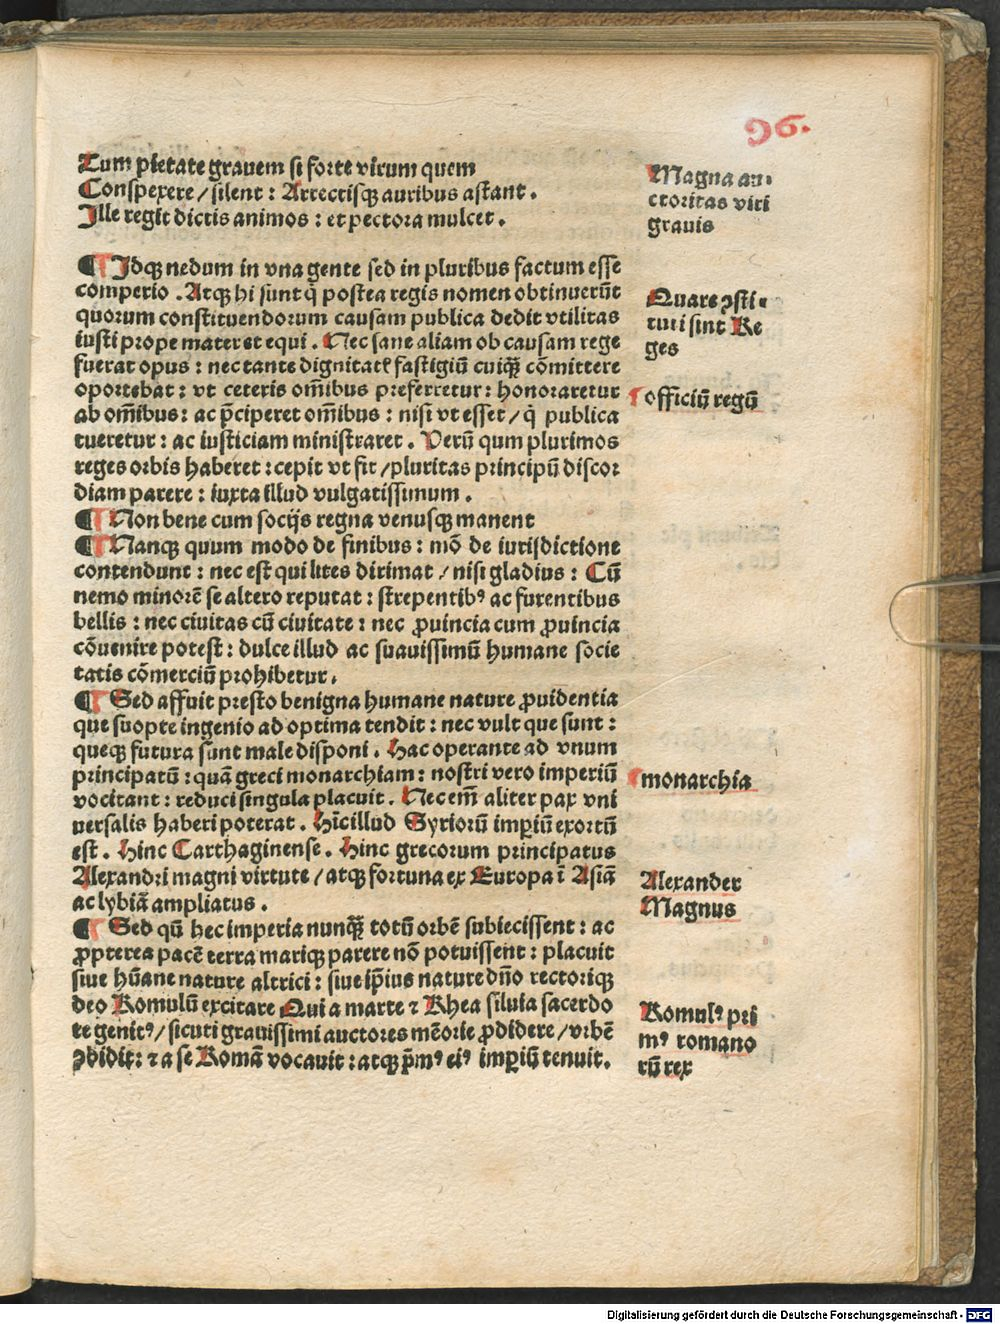 96.
Tum pietate grauem si forte virum quem
Conspexere / silent : Arrectisqꝫ auribus astant .
Ille regit dictis animos : et pectora mulcet .
Magna au-
ctoritas viri
grauis
¶ Idqꝫ nedum in vna gente sed in pluribus factum esse
comperio . Atqꝫ hi sunt q̄ postea regis nomen obtinuerūt
quorum constituendorum causam publica dedit vtilitas
iusti prope mater et equi . Nec sane aliam ob causam rege
fuerat opus : nec tante dignitatē fastigiū cuiqꝫ cōmittere
oportebat : vt ceteris om̄ibus preferretur : honoraretur
ab om̄ibus : ac p̄ciperet om̄ibus : nisi vt esset / q̄ publica
tueretur : ac iusticiam ministraret . Verū qum plurimos
reges orbis haberet : cepit vt fit / pluritas principū discor
diam parere : iuxta illud vulgatissimum .
Quare ꝯsti-
tuti sint Re
ges
officiū regū
¶ Non bene cum socijs regna venusqꝫ manent
¶ Nanqꝫ quum modo de finibus : mō de iurisdictione
contendunt : nec est qui lites dirimat / nisi gladius : Cū
nemo minorē se altero reputat : strepentibꝰ ac furentibus
bellis : nec ciuitas cū ciuitate : nec ꝓuincia cum ꝓuincia
cōuenire potest : dulce illud ac suauissimū humane socie
tatis cōmerciū prohibetur .
¶ Sed affuit presto benigna humane nature ꝓuidentia
que suopte ingenio ad optima tendit : nec vult que sunt :
queqꝫ futura sunt male disponi . Hac operante ad vnum
principatū : quā greci monarchiam : nostri vero imperiū
vocitant : reduci singula placuit . Nec em̄ aliter pax vni
uersalis haberi poterat . Hīc illud Syriorū imꝑiū exortū
est . Hinc Carthaginense . Hinc grecorum principatus
Alexandri magni virtute / atqꝫ fortuna ex Europa ī Asiā
ac lybiā ampliatus .
monarchia
Alexander
Magnus
¶ Sed qū hec imperia nunqꝫ̄ totū orbē subiecissent : ac
ꝓpterea pacē terra mariqꝫ parere nō potuissent : placuit
siue hūane nature altrici : siue ip̄ius nature dn̄o rectoriqꝫ
deo Romulū excitare Qui a marte ⁊ Rhea siluia sacerdo
te genitꝰ / sicuti grauissimi auctores mēorie ꝓdidere / vrbē
ꝯdidit : ⁊ a se Romā vocauit : atqꝫ p̄mꝰ eiꝰ imꝑiū tenuit .
Romulꝰ pri
mꝰ romano
rū rex
Digitalisierung gefördert durch die Deutsche Forschungsgemeinschaft - DFG